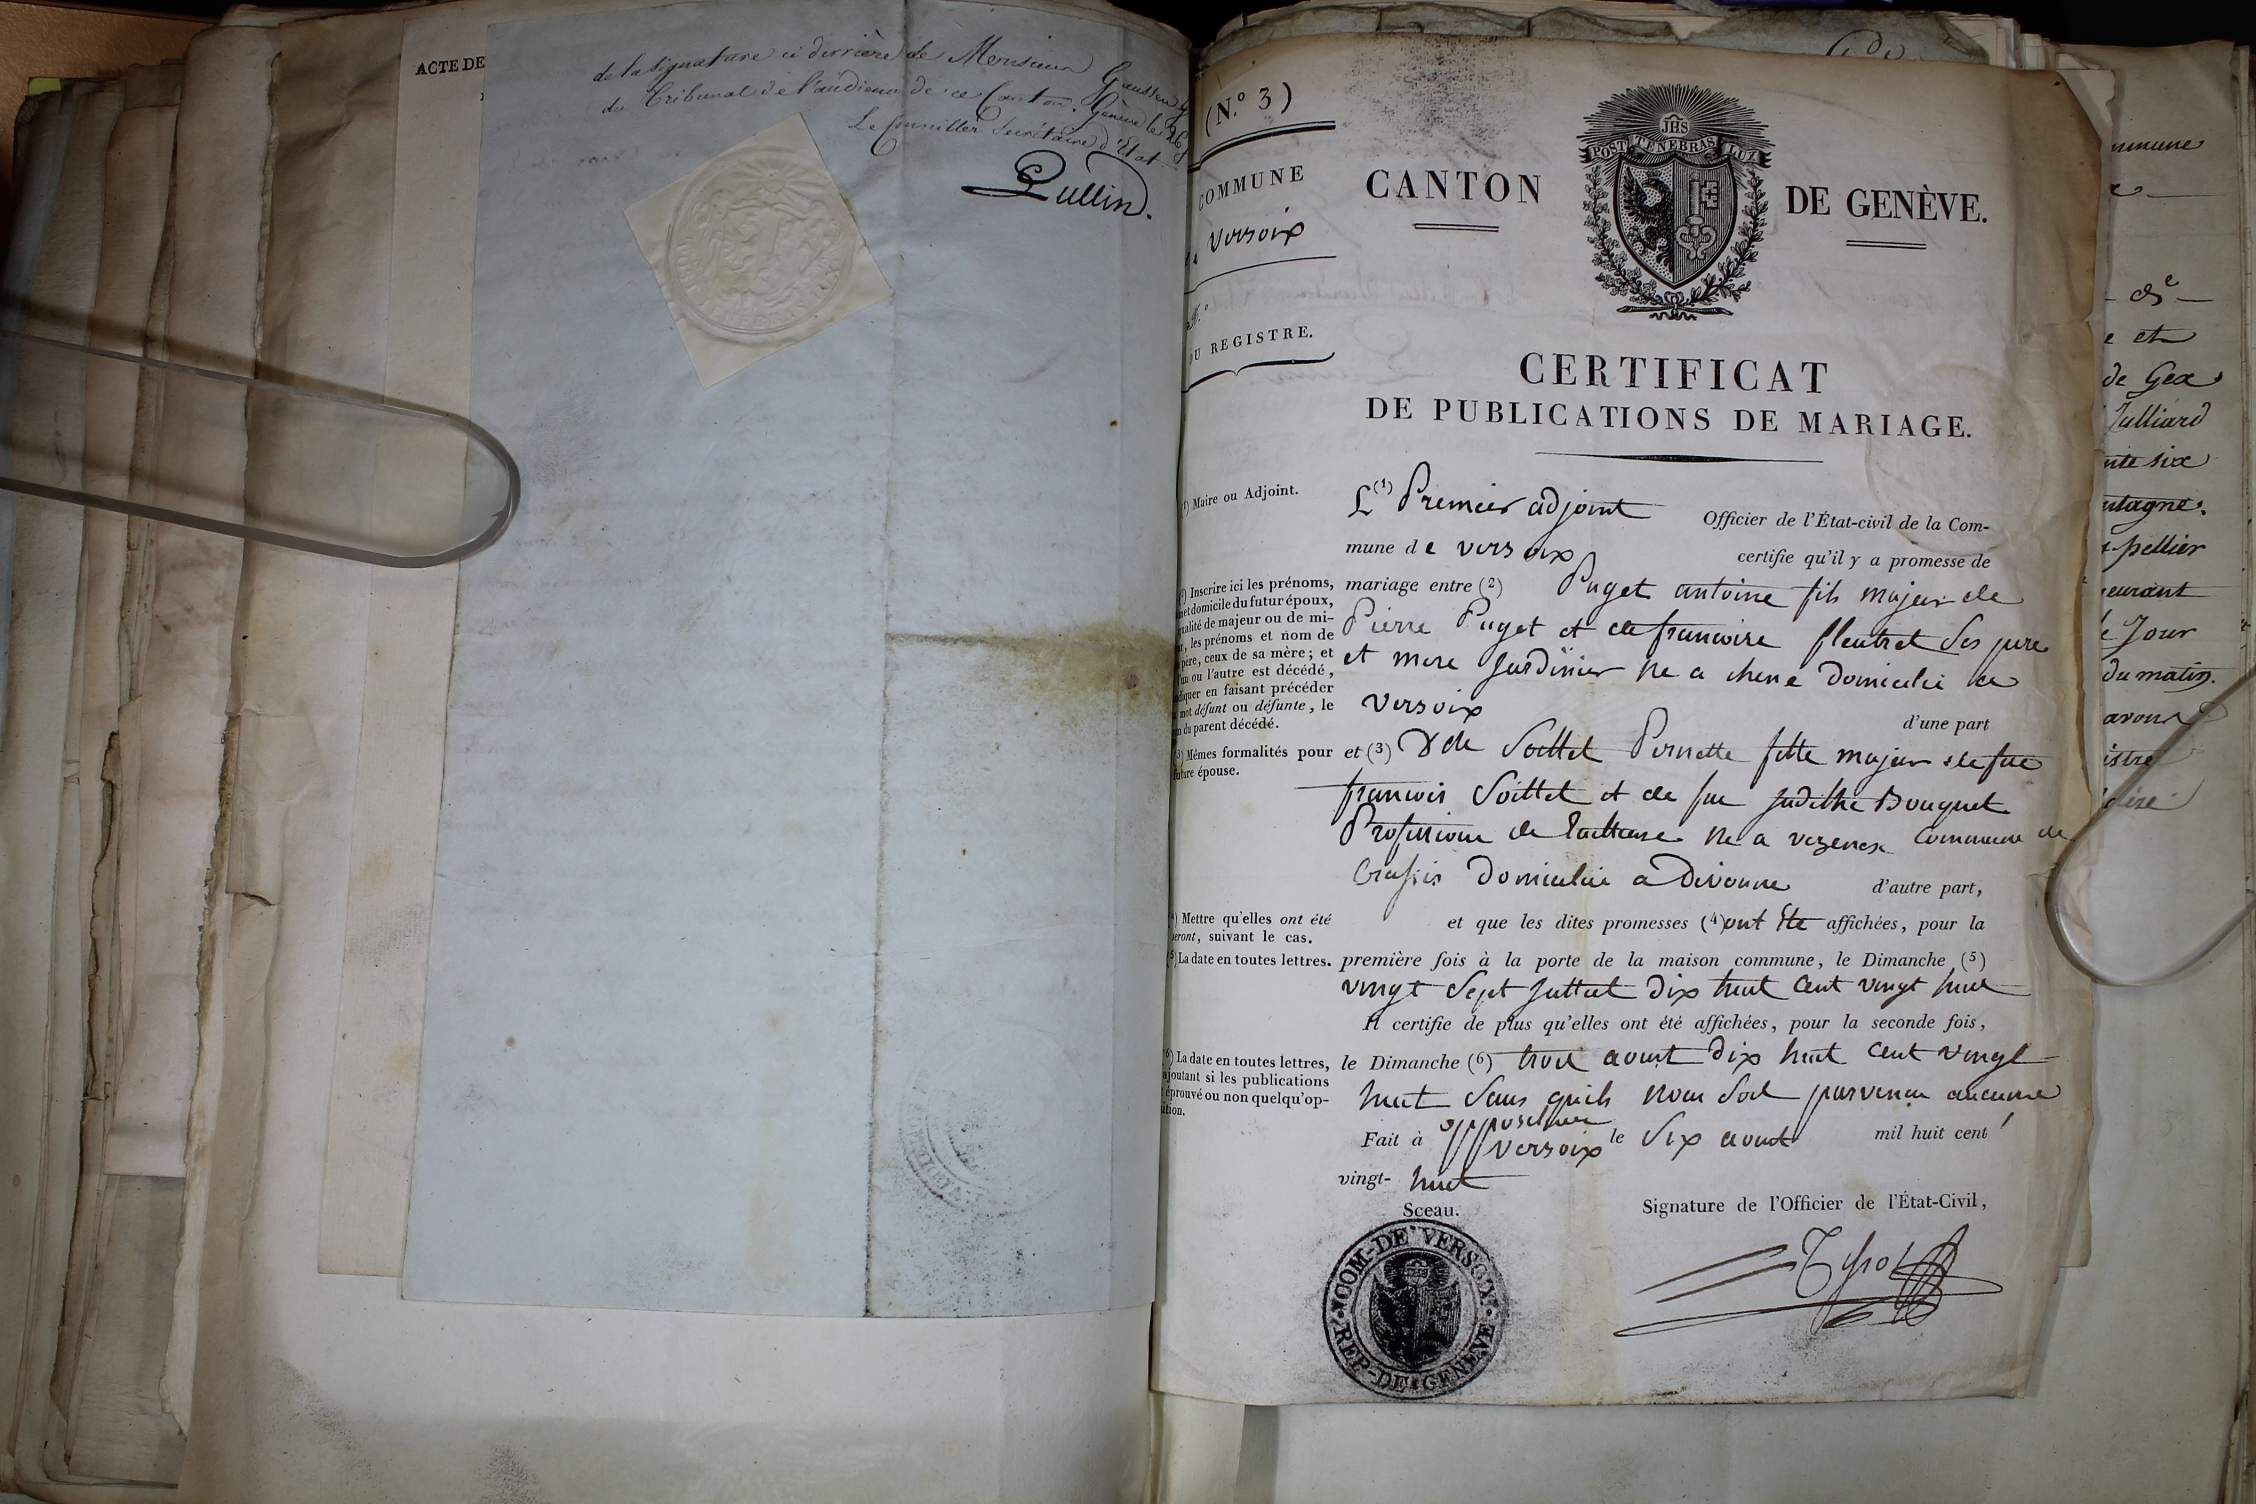 ACTE DE
de la signature ci derrière de Monsieur Gaussen
du Tribunal de l'audience de ce Canton. Genève le 26
Le Conseiller Secrétaire d'Etat
Lullin.
(N.º 3)
COMMUNE
Versoix
N.º
DU REGISTRE.
JHS
POST TENEBRAS LUX
CANTON DE GENÈVE.
CERTIFICAT
DE PUBLICATIONS DE MARIAGE.
) Maire ou Adjoint.
L(1) Premier adjoint Officier de l'État-civil de la Com-
mune de versoix certifie qu'il y a promesse de
mariage entre (2) Puget antoine fils majeur de
Pierre Puget et de francoise fleutret ses pere
et mere Jardinier ne a chene Domicilie a
versoix d'une part
) Inscrire ici les prénoms,
et domicile du futur époux,
qualité de majeur ou de mi-
, les prénoms et nom de
père, ceux de sa mère; et
l'un ou l'autre est décédé,
indiquer en faisant précéder
mot défunt ou défunte, le
du parent décédé.
(3) Mêmes formalités pour
future épouse.
et (3) Soittet Pernette fille majeur de feu
francois Soittet et de feu Judithe Bouquet
Profession de Tailleuse ne a vezenex Commune de
Crassis Domicilie a Divonne d'autre part,
) Mettre qu'elles ont été
seront, suivant le cas.
et que les dites promesses (4) ont Ete affichées, pour la
(5) La date en toutes lettres.
première fois à la porte de la maison commune, le Dimanche (5)
vingt Sept Juillet Dix huit Cent vingt huit
Il certifie de plus qu'elles ont été affichées, pour la seconde fois,
(6) La date en toutes lettres,
ajoutant si les publications
éprouvé ou non quelqu'op-
ition.
le Dimanche (6) trois aoust Dix huit Cent vingt
huit Sans quils nous Soit parvenu aucunne
opposition
Fait à versoix le Six aoust mil huit cent
vingt- huit
Sceau.
Signature de l'Officier de l'État-Civil,
COM-DE VERSOIX
REP-DE GENEVE
mmune
et
de Gex
Julliard
nte six
ntagne.
pellier
eurant
Jour
du matin.
avons
istre